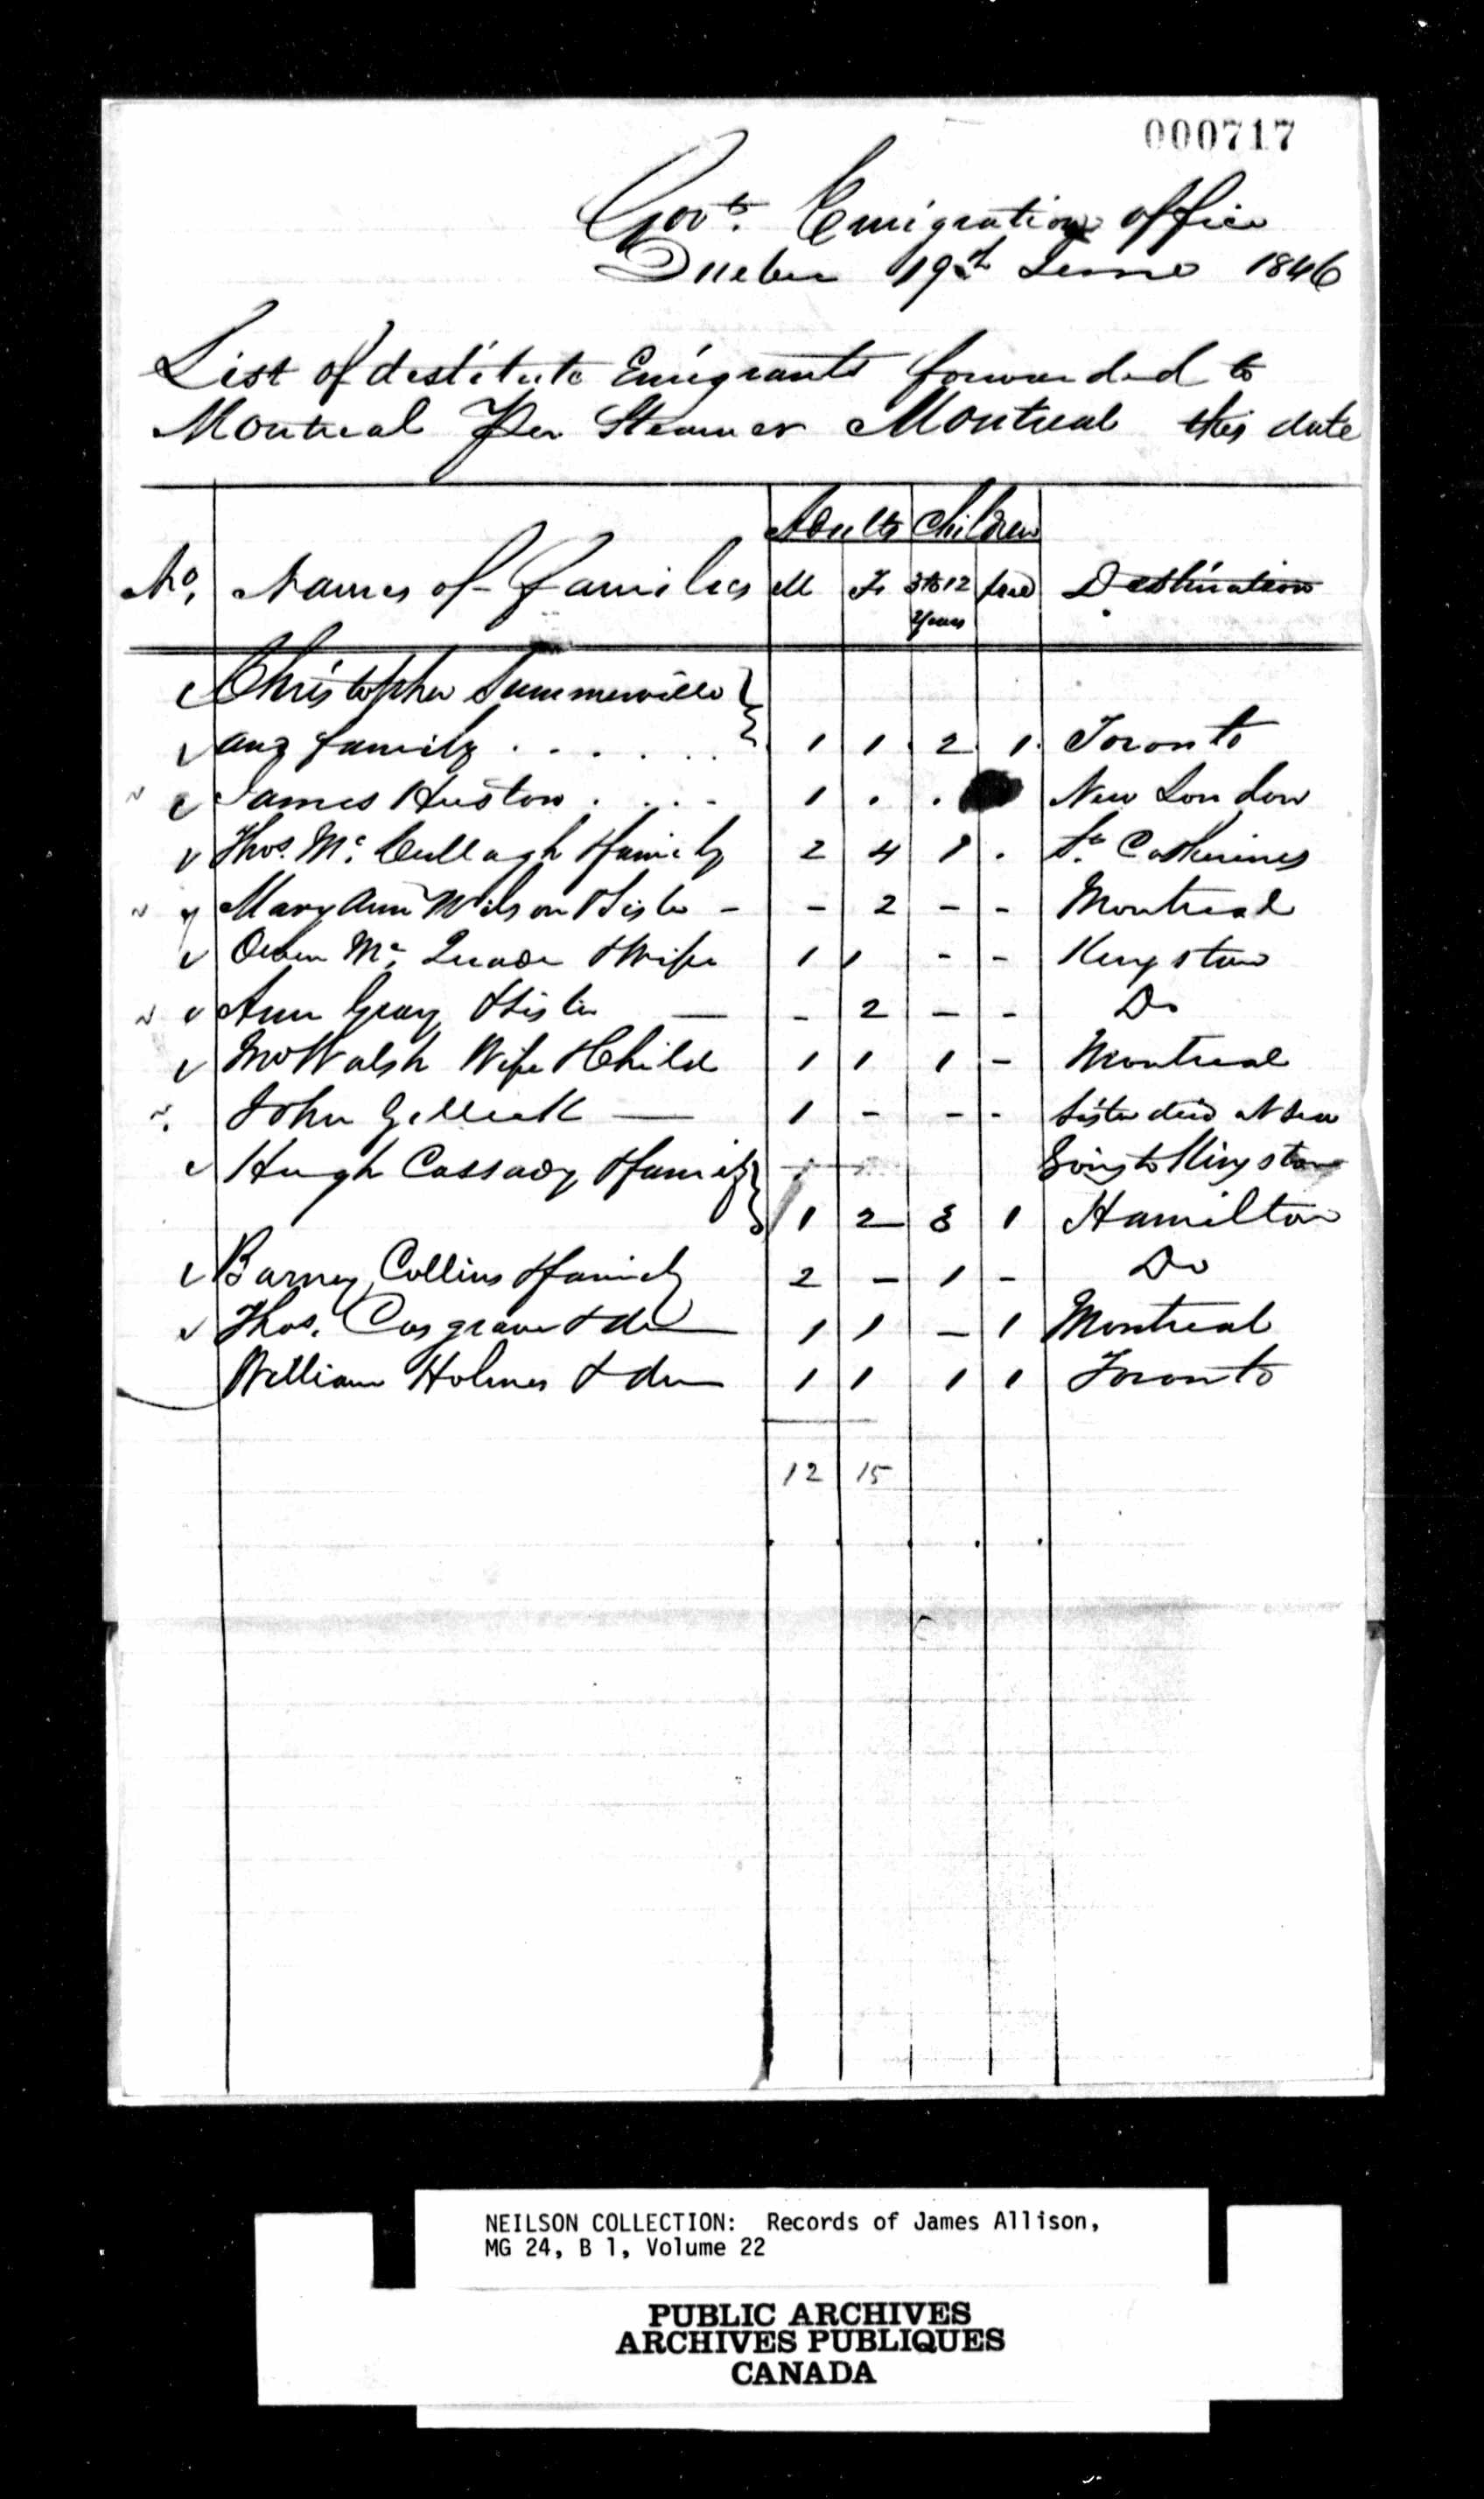 000717
Govt. Emigration office
Quebec 19th June 1846
List of destitute Emigrants forwarded to
Montreal Per Steamer Montreal this date
Adults Children
No. Names of families M F 3 to 12 free Destination
Years
Christopher Summerville
and family . . . . . . 1 1 2 1 Toronto
James Huston . . . - 1 . . New London
Thos. Mc. Cullagh & family 2 4 1 . St. Catherines
Mary Ann Wilson & Sister - - 2 - - Montreal
Owen Mc. Quade & Wife 1 1 - - Kingston
Ann Gray & Sister — - 2 - - Do
Walsh Wife & Child 1 1 1 - Montreal
John — 1 - - - Sister died at Sea
Hugh Cassady & family going to Kingston
1 2 3 1 Hamilton
Barney Collins & family 2 - 1 - Do
Thos. Cosgrave & do 1 1 - 1 Montreal
William Holmes & do 1 1 1 1 Toronto
12 15
NEILSON COLLECTION: Records of James Allison,
MG 24, B 1, Volume 22
PUBLIC ARCHIVES
ARCHIVES PUBLIQUES
CANADA